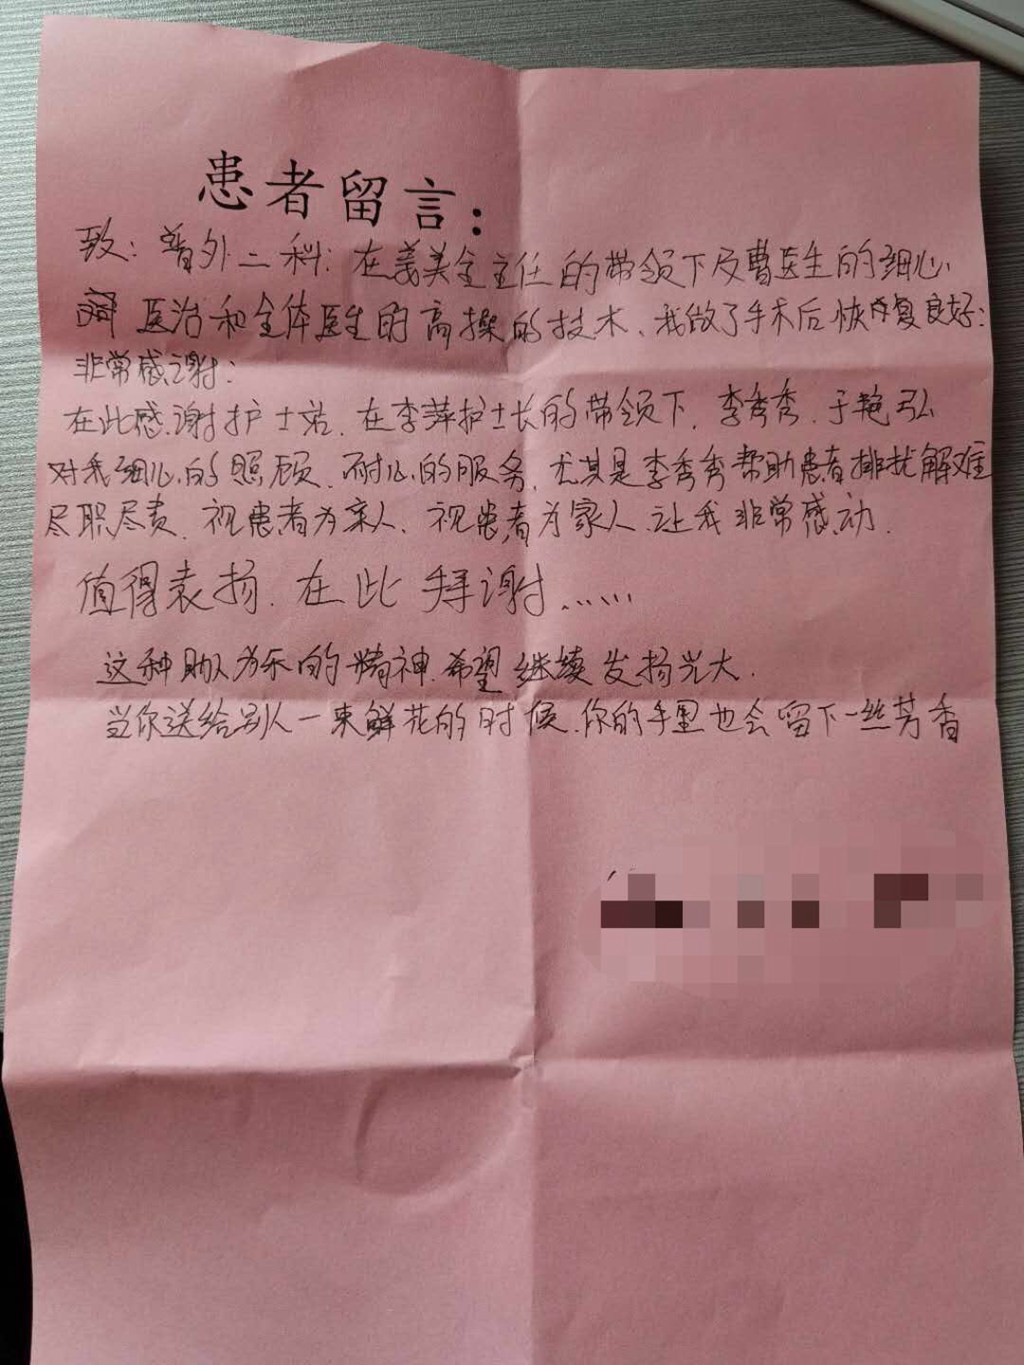 患者留言:
致:普外二科:在義美全主任的带领下及曹医生的细心
医治和全体医生的高操的技术、我做了手术后恢复良好:
非常感谢:
在此感谢护士站.在李萍护士长的带领下.李秀秀.于艳弘
对我细心的照顾.耐心的服务.尤其是李秀秀帮助患者排扰解难
尽职尽责.视患者为亲人.视患者为家人.让我非常感动.
值得表扬.在此拜谢......
这种助人为乐的精神.希望继续发扬光大.
当你送给别人一束鲜花的时候.你的手里也会留下一丝芳香